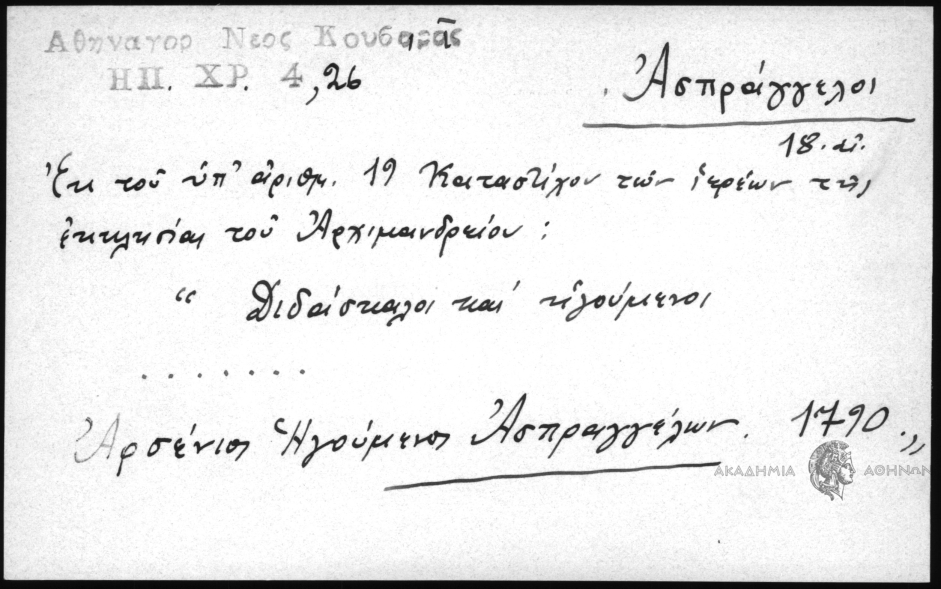 Αθηναγορ Νεος Κουβαρᾶς
ΗΠ. ΧΡ. 4, 26
Ἀσπράγγελοι
18. αἰ.
Ἐκ τοῦ ὑπ' ἀριθμ. 19 Καταστίχου τῶν ἱερέων τῆς
ἐκκλησίας τοῦ Ἀρχιμανδρείου :
“ Διδάσκαλοι καί ἡγούμενοι
. . . . . . . .
Ἀρσένιος Ἡγούμενος Ἀσπραγγέλων. 1790 „
ΑΚΑΔΗΜΙΑ ΑΘΗΝΩΝ